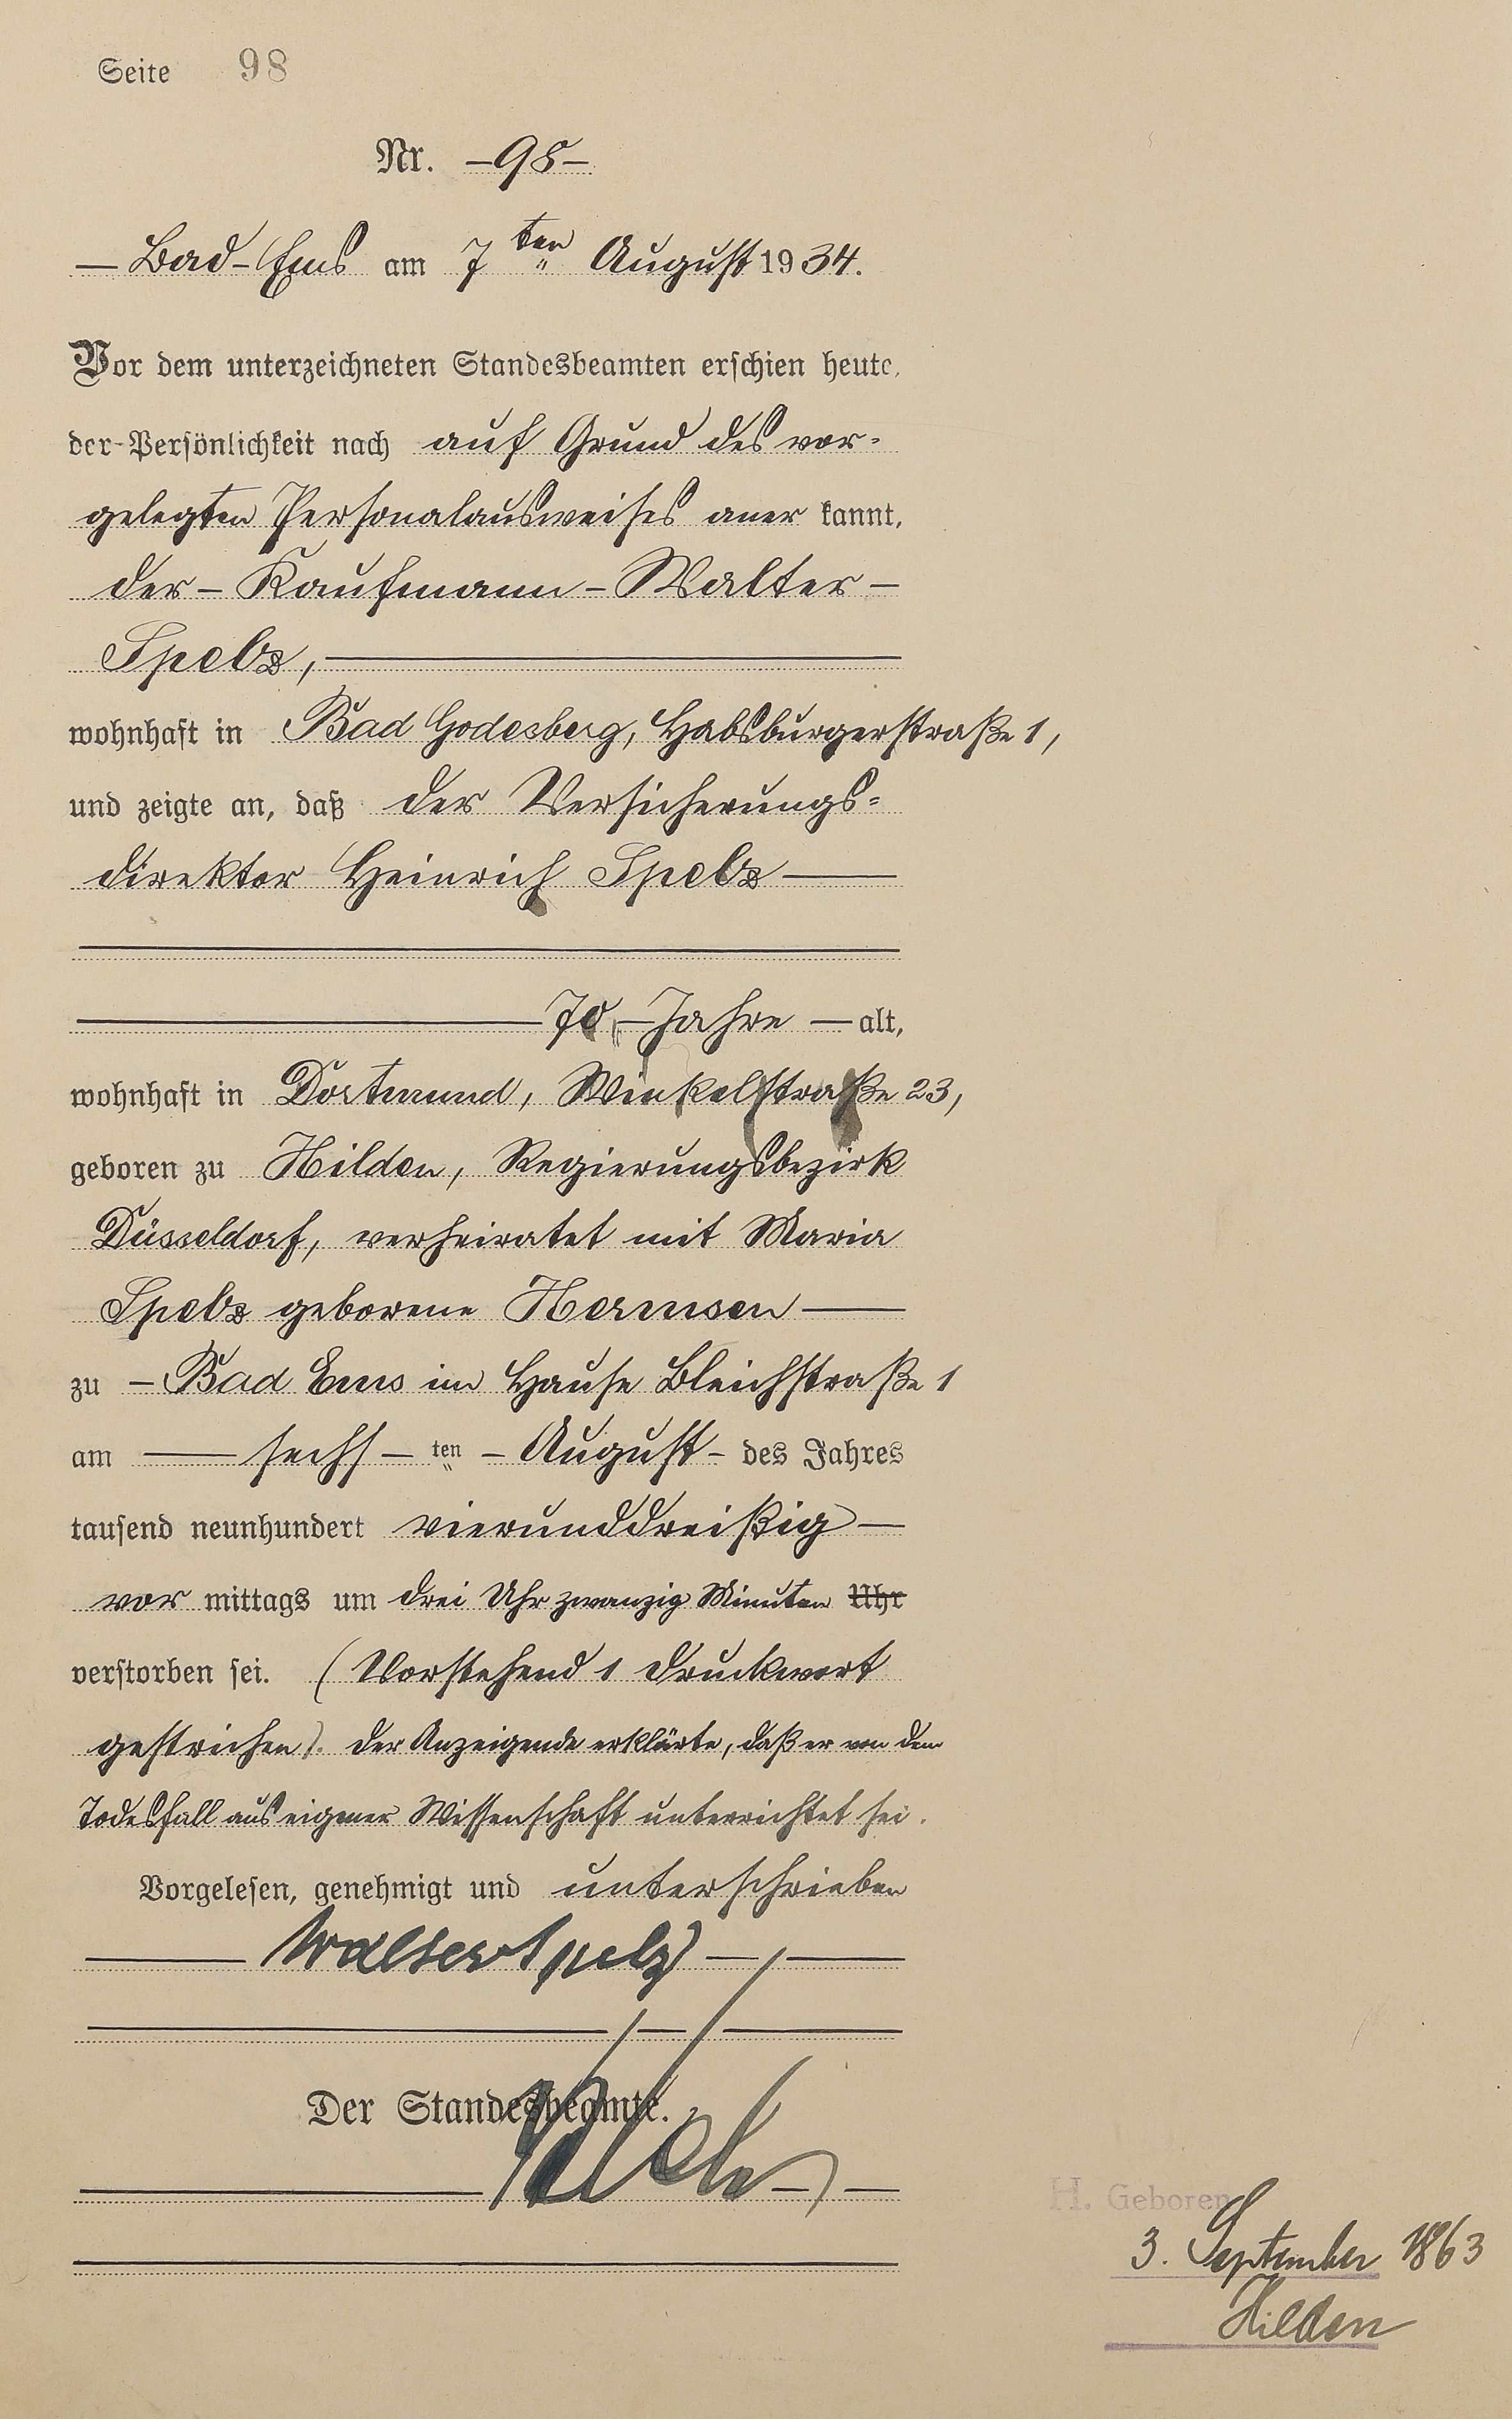 Seite 98
Nr. -98-
- Bad-Ems am 7ten August 1934.
Vor dem unterzeichneten Standesbeamten erschien heute,
der Persönlichkeit nach auf Grund des vor-
gelegten Personalausweises aner kannt,
der - Kaufmann - Walter -
Spelz,
wohnhaft in Bad Godesberg, Habsburgerstraße 1,
und zeigte an, daß der Versicherungs-
direktor Heinrich Spelz
70 - Jahre - alt,
wohnhaft in Dortmund, Winkelstraße 23,
geboren zu Hilden, Regierungsbezirk
Düsseldorf, verheiratet mit Maria
Spelz geborene Hermsen
zu - Bad Ems im Hause Bleichstraße 1
am sechs - ten - August - des Jahres
tausend neunhundert vierunddreißig -
vor mittags um drei Uhr zwanzig Minuten Uhr
verstorben sei. (Vorstehend 1 Druckwort
gestrichen). Der Anzeigende erklärte, daß er von dem
Todesfall aus eigener Wissenschaft unterrichtet sei.
Vorgelesen, genehmigt und unterschrieben
Walter Spelz
Der Standesbeamte.
H. Geboren
3. September 1863
Hilden